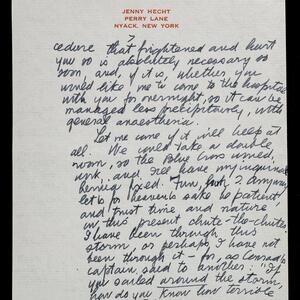 JENNY HECHT
PERRY LANE
NYACK, NEW YORK
?
cedure that frightened and hurt
you so is absolutely necessary so
soon, and, if it is, whether you
would like me to come to the hospital
with you for overnight, so it can be
managed less precipitously, with
general anaesthesia.
Let me come if it will help at
all. We could take a double
room, so the Blue Cross would
work, and I'll have my inguinal
hernia fixed. Fun, huh? Anyway,
let's for heaven's sake be patient,
and trust time and nature
in this present chute-the-chutes.
I have been through this
storm, or perhaps I have not
been through it – for, as Conrad's
captain said to another: "If
you sailed around the storm,
how do you know how terrible